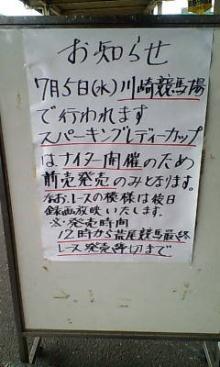 お知らせ
7月5日(水)川崎競馬場
で行われます
スパーキングレディーカップ
はナイター開催のため
前売発売のみとなります。
なお、レースの模様は後日
録画放映いたします。
※発売時間
12時から荒尾競馬最終
レース発売締切まで